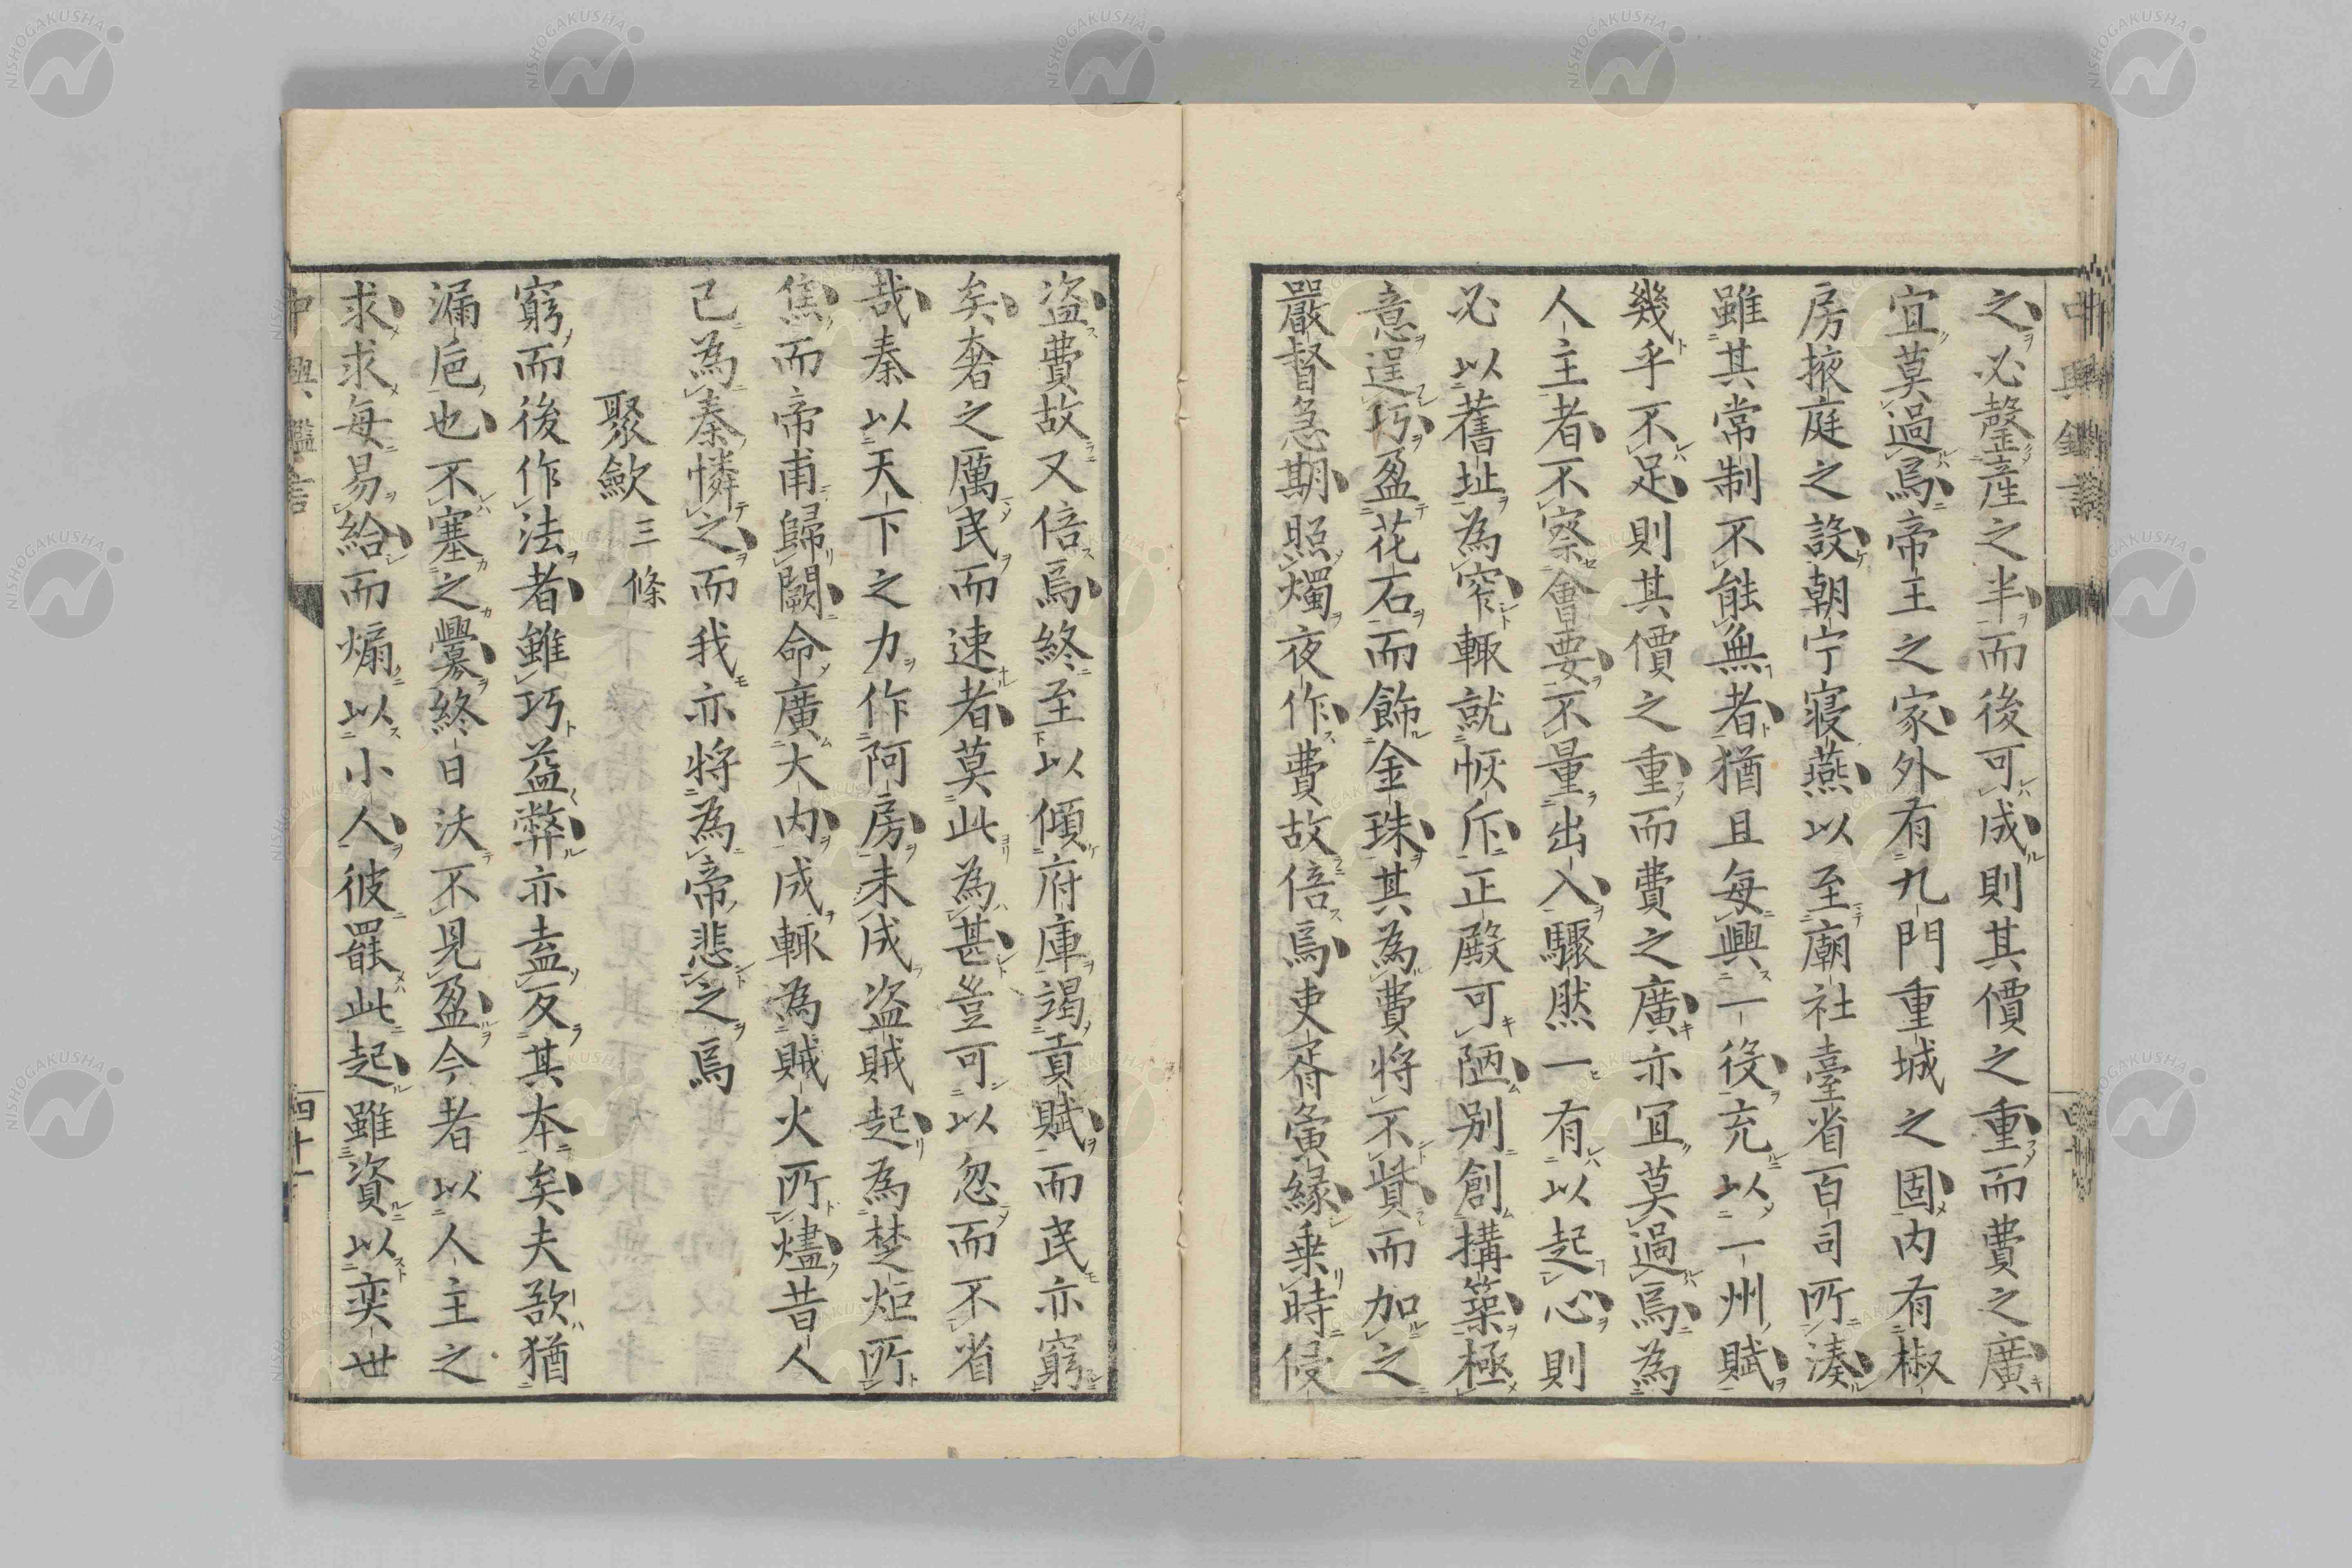 之必罄產之半而後可成則其價之重而費之廣
宜莫過焉帝王之家外有九門重城之固内有椒
房掖庭之設朝宁寝燕以至廟社臺省百司所湊
雖其常制不能無者猶且每興一役充以一州賦
幾乎不足則其價之重而費之廣亦宜莫過焉為
人主者不察會要不量出入驟然一有以起心則
必以舊址為窄輙就恢斥正殿可陋别創搆築極
意逞巧盈花石而飾金珠其為費將不貲而加之
嚴督急期照燭夜作費故倍焉吏胥夤縁乗時侵
盗費故又倍焉終至以傾府庫竭貢賦而民亦窮
矣奢之厲民而速者莫此為甚豈可以忽而不省
哉秦以天下之力作阿房未成盗賊起為楚炬所
焦而帝甫歸闕命廣大内成輙為賊火所燼昔人
已為秦憐之而我亦将為帝悲之焉
聚歛三條
窮而後作法者雖巧益弊亦盍反其本矣夫歛猶
漏巵也不塞之釁終日沃不見盈今者以人主之
求求每易給而煽以小人彼罷此起雖資以奕世
中興鑑言
四十一